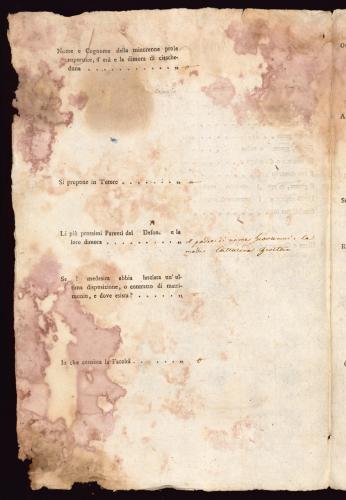 Nome e Cognome della minorenne prole
superstite, l' età e la dimora di ciasche-
duna . . . . . . . . . . „
Si propone in Tutore . . . . . . „
Li più prossimi Parenti del Defon. e la
loro dimora . . . . . . . . „ Il padre di nome Giovanni. la
madre Cattarina
Se medesim abbia lasciata un' ul-
tima disposizione, o contratto di matri-
monio, e dove esista? . . . . . . „
In che consista la Facoltà . . . . . „